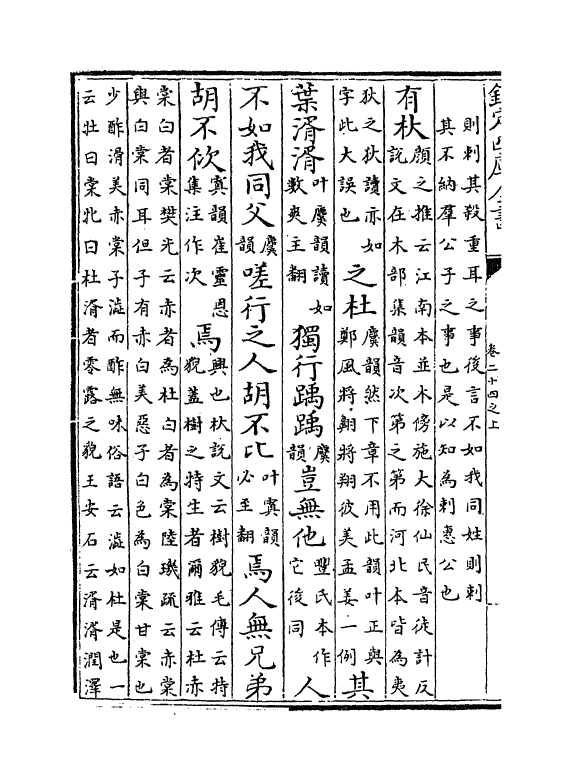 欽定四庫全書
卷二十四之上
則刺其殺重耳之事後言不如我同姓則刺
其不納羣公子之事也是以知為刺惠公也
有杕顔之推云江南本並木傍施大徐仙民音徒計反
說文在木部集韻音次第之第而河北本皆為夷
狄之狄讀亦如
字此大誤也
之杜麌韻然下章不用此韻叶正與
鄭風將翺將翔彼美孟姜一例其
葉湑湑叶麌韻讀如
數爽主翻
獨行踽踽麌韻豈無他豐氏本作
它後同人
不如我同父麌韻嗟行之人胡不比叶寘韻
必至翻焉人無兄弟
胡不佽寘韻崔靈恩
集注作次焉興也杕說文云樹貌毛傳云特
貌蓋樹之特生者爾雅云杜赤
棠白者棠樊光云赤者為杜白者為棠陸璣疏云赤棠
與白棠同耳但子有赤白美惡子白色為白棠甘棠也
少酢滑美赤棠子澁而酢無味俗語云澁如杜是也一
云牡曰棠牝曰杜湑者零露之貌王安石云湑湑潤澤